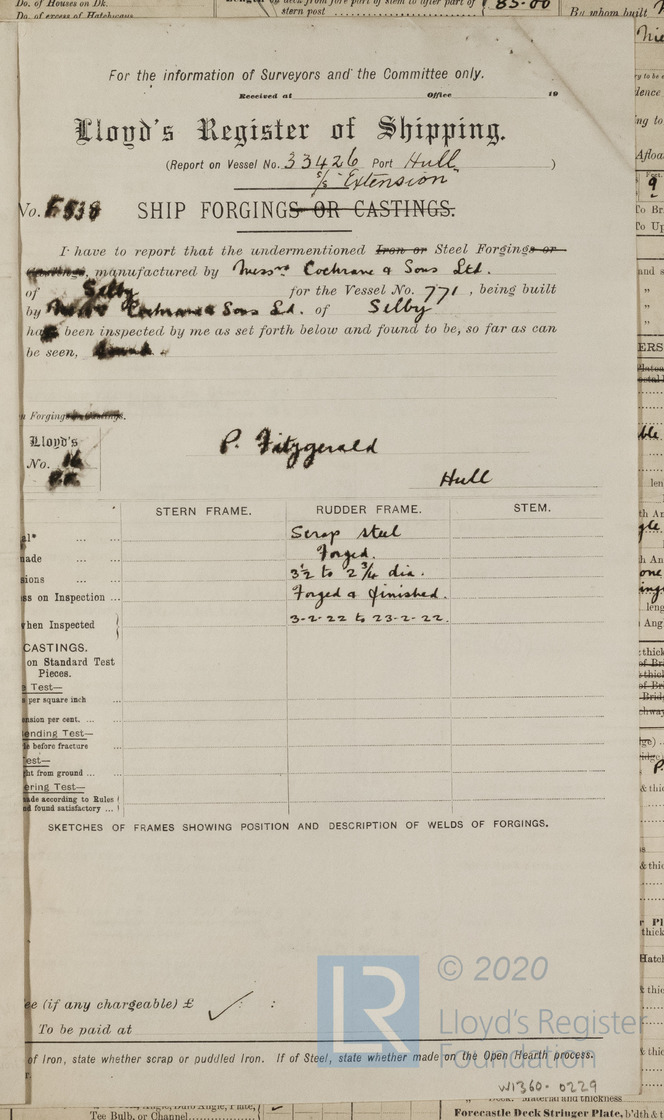 For the information of Surveyors and the Committee only.
Received at Office 19
Lloyd's Register of Shipping.
(Report on Vessel No. 33426 Port Hull )
S/S "Extension"
No. F538 SHIP FORGINGS OR CASTINGS.
I have to report that the undermentioned Iron or Steel Forgings or
castings, manufactured by Messrs Cochrane & Sons Ltd.
of Selby for the Vessel No. 771, being built
by Messrs Cochrane & Sons Ld. of Selby
has been inspected by me as set forth below and found to be, so far as can
be seen, sound.
Forgings or Castings.
Lloyd's
No. 16
P. Fitzgerald
Hull
STERN FRAME. RUDDER FRAME. STEM.
al* ... ... Scrap steel
made ... ... Forged.
sions ... ... 3½ to 2¾ dia.
ss on Inspection ... Forged & finished.
when Inspected 3-2-22 to 23-2-22.
CASTINGS.
on Standard Test
Pieces.
Test—
per square inch ...
nsion per cent. ... ...
ending Test—
le before fracture ...
est—
ht from ground ... ...
ering Test—
ade according to Rules
ed found satisfactory ...
SKETCHES OF FRAMES SHOWING POSITION AND DESCRIPTION OF WELDS OF FORGINGS.
ee (if any chargeable) £ ✓ : :
To be paid at
of Iron, state whether scrap or puddled Iron. If of Steel, state whether made on the Open Hearth process.
LR
© 2020
Lloyd's Register
Foundation
W1360-0229
Do. of Houses on Dk.
Do. of excess of Hatchways
stern post
85.00
By whom built
Tee Bulb, or Channel
Forecastle Deck Stringer Plate, b'dth &